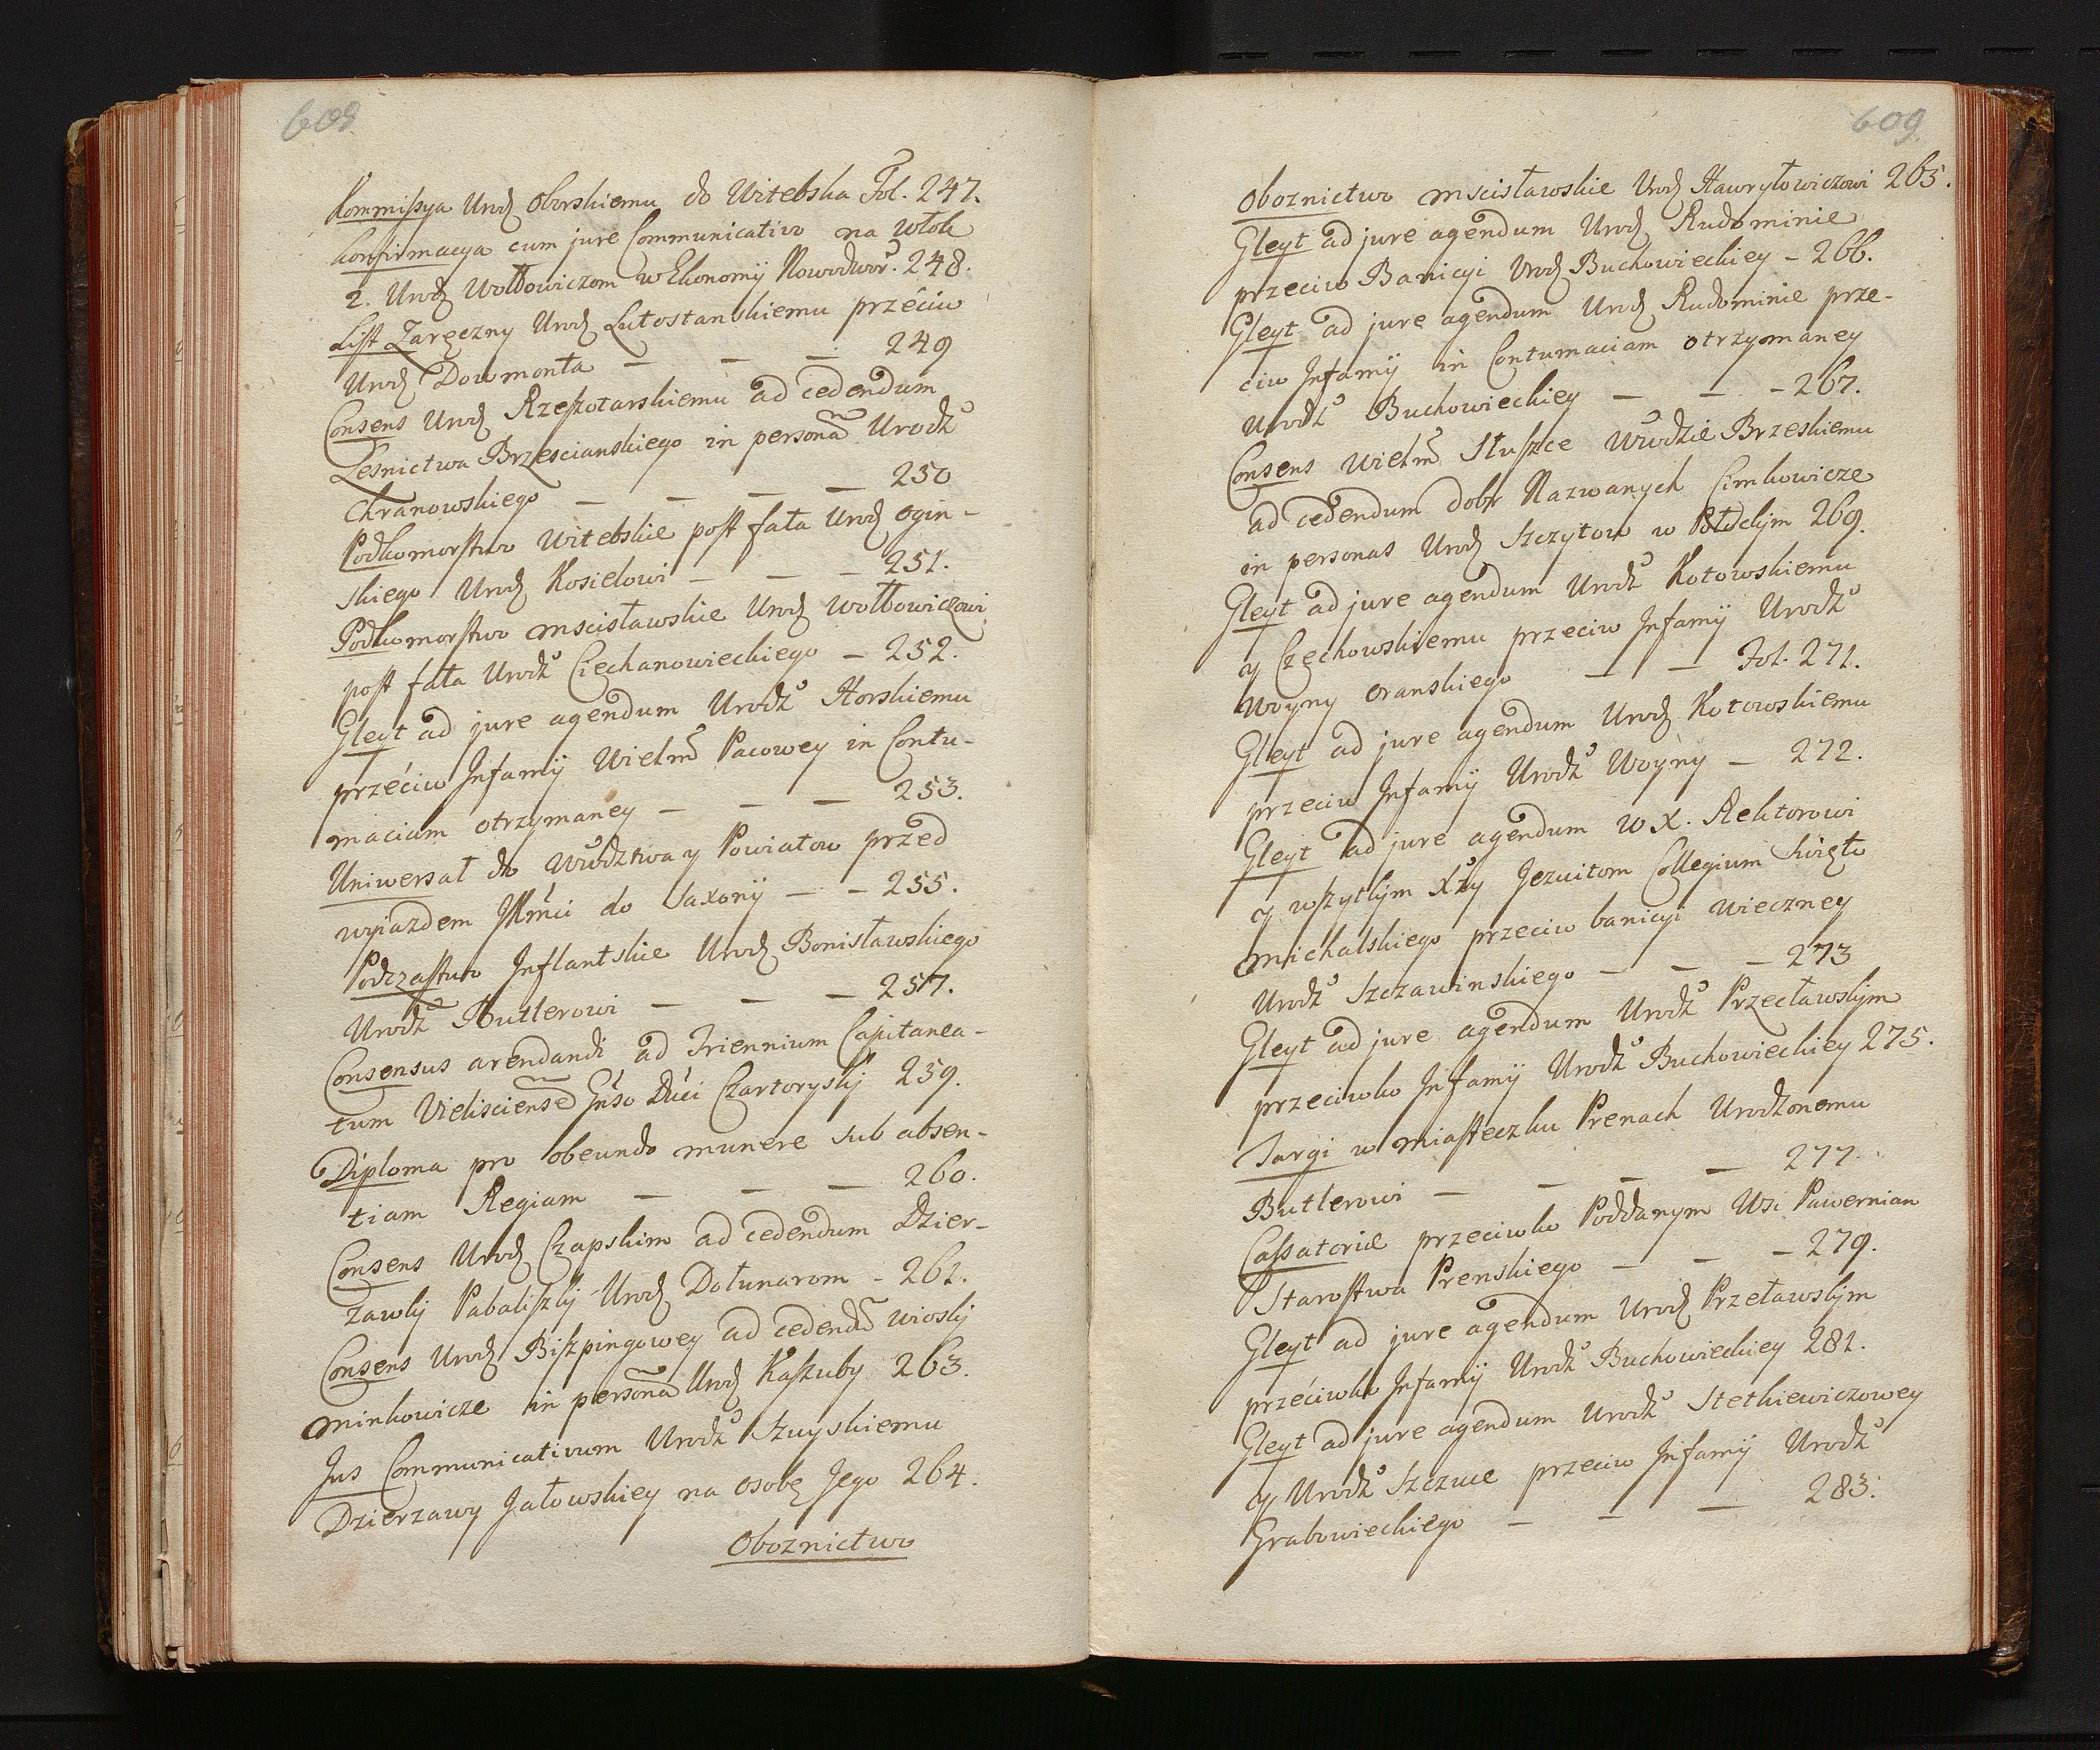 608
Kommissya Urod Oborskiemu do Witebska Fol. 247.
Konfirmacya cum jure Communicativo na włok
2. Urodz Wołłowiczom w Ekonomÿ Nowodwor. 248.
List Zaręczny Urodz Lutostanskiemu przeciw
Urodz Dowmonta — — — 249
Consens Urodz Rzeszotarskiemu ad cedendum
Lesnictwa Brzescianskiego in personã Urodz
Chranowskiego — — — — 250
Podkomorstwo Witebskie post fata Urodz Ogin-
skiego Urodz Kosielowi — — — 251.
Podkomorstwo Mscisławskie Urodz Wołłowiczowi
post fata Urodz Ciechanowieckiego — 252.
Gleyt ad jure agendum Urodz Horskiemu
przeciw Infamÿ Wielm Pacowey in Contu-
maciam otrzymaney — — — 253.
Uniwersał do Wwdztwa y Powiatow przed
wyiazdem JKmci do Saxonÿ — — 255.
Podczastwo Inflantskie Urodz Bonisławskiego
Urodz Butlerowi — — — 257.
Consensus arendandi ad Triennium Capitanea-
tum Vielisciense Gnso Duci Czartoryskÿ 259.
Diploma pro obeundo munere sub absen-
tiam Regiam — — — 260.
Consens Urodz Czapskim ad cedendum Dzier-
zawÿ Pabaliszkÿ Urodz Dołunarom - 261.
Consens Urodz Biszpingowey ad cedendũ wioskÿ
Minkowicze in personã Urodz Kaszuby 263.
Jus Communicativum Urodz Szuyskiemu
Dzierzawy Jałowskiey na osobę Jego 264.
Oboznictwo
609
Oboznictwo Mscisławskie Urodz Hawryłowiczowi 265.
Gleyt ad jure agendum Urodz Rudominie
przeciw Banicyi Urodz Buchowieckiey - 266.
Gleyt ad jure agendum Urodz Rudominie prze-
ciw Infamÿ in Contumaciam otrzymaney
Urodz Buchowieckiey — — - 267.
Consens Wielm Słuszce Wwodzie Brzeskiemu
ad cedendum dobr Nazwanych Cimkowicze
in personas Urodz Szczytow w Połockÿm 269.
Gleyt ad jure agendum Urodz Kotowskiemu
y Czechowskiemu przeciw Infamÿ Urodz
Woyny Oranskiego — — Fol. 271.
Gleyt ad jure agendum Urodz Kotowskiemu
przeciw Infamÿ Urodz Woyny — 272.
Gleyt ad jure agendum W X. Rektorowi
y wszytkÿm Xży Jezuitom Collegium Swięto
Michalskiego przeciw banicyi wieczney
Urodz Szczawinskiego — — - 273
Gleyt ad jure agendum Urodz Przecławskÿm
przeciwko Infamÿ Urodz Buchowieckiey 275.
Targi w miasteczku Prenach Urodzonemu
Butlerowi — — — — 277.
Cassatoriæ przeciwko Poddanym Wsi Pawernian
Starostwa Prenskiego — — - 279.
Gleyt ad jure agendum Urodz Przeławskÿm
przeciwko Infamÿ Urodz Buchowieckiey 281.
Gleyt ad jure agendum Urodz Stetkiewiczowey
y Urodz Szczuce przeciw Infamÿ Urodz
Grabowieckiego — — — 283.